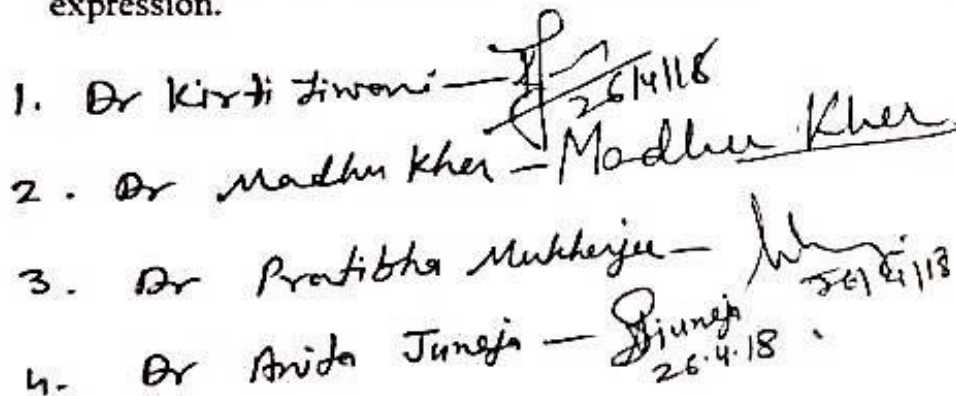 expression.
1. Dr Kirti Tiwari - 26/4/18
2. Dr Madhu Kher - Madhu Kher
3. Dr Pratibha Mukherjee - 26/4/18
4. Dr Anita Juneja - Ajuneja 26.4.18